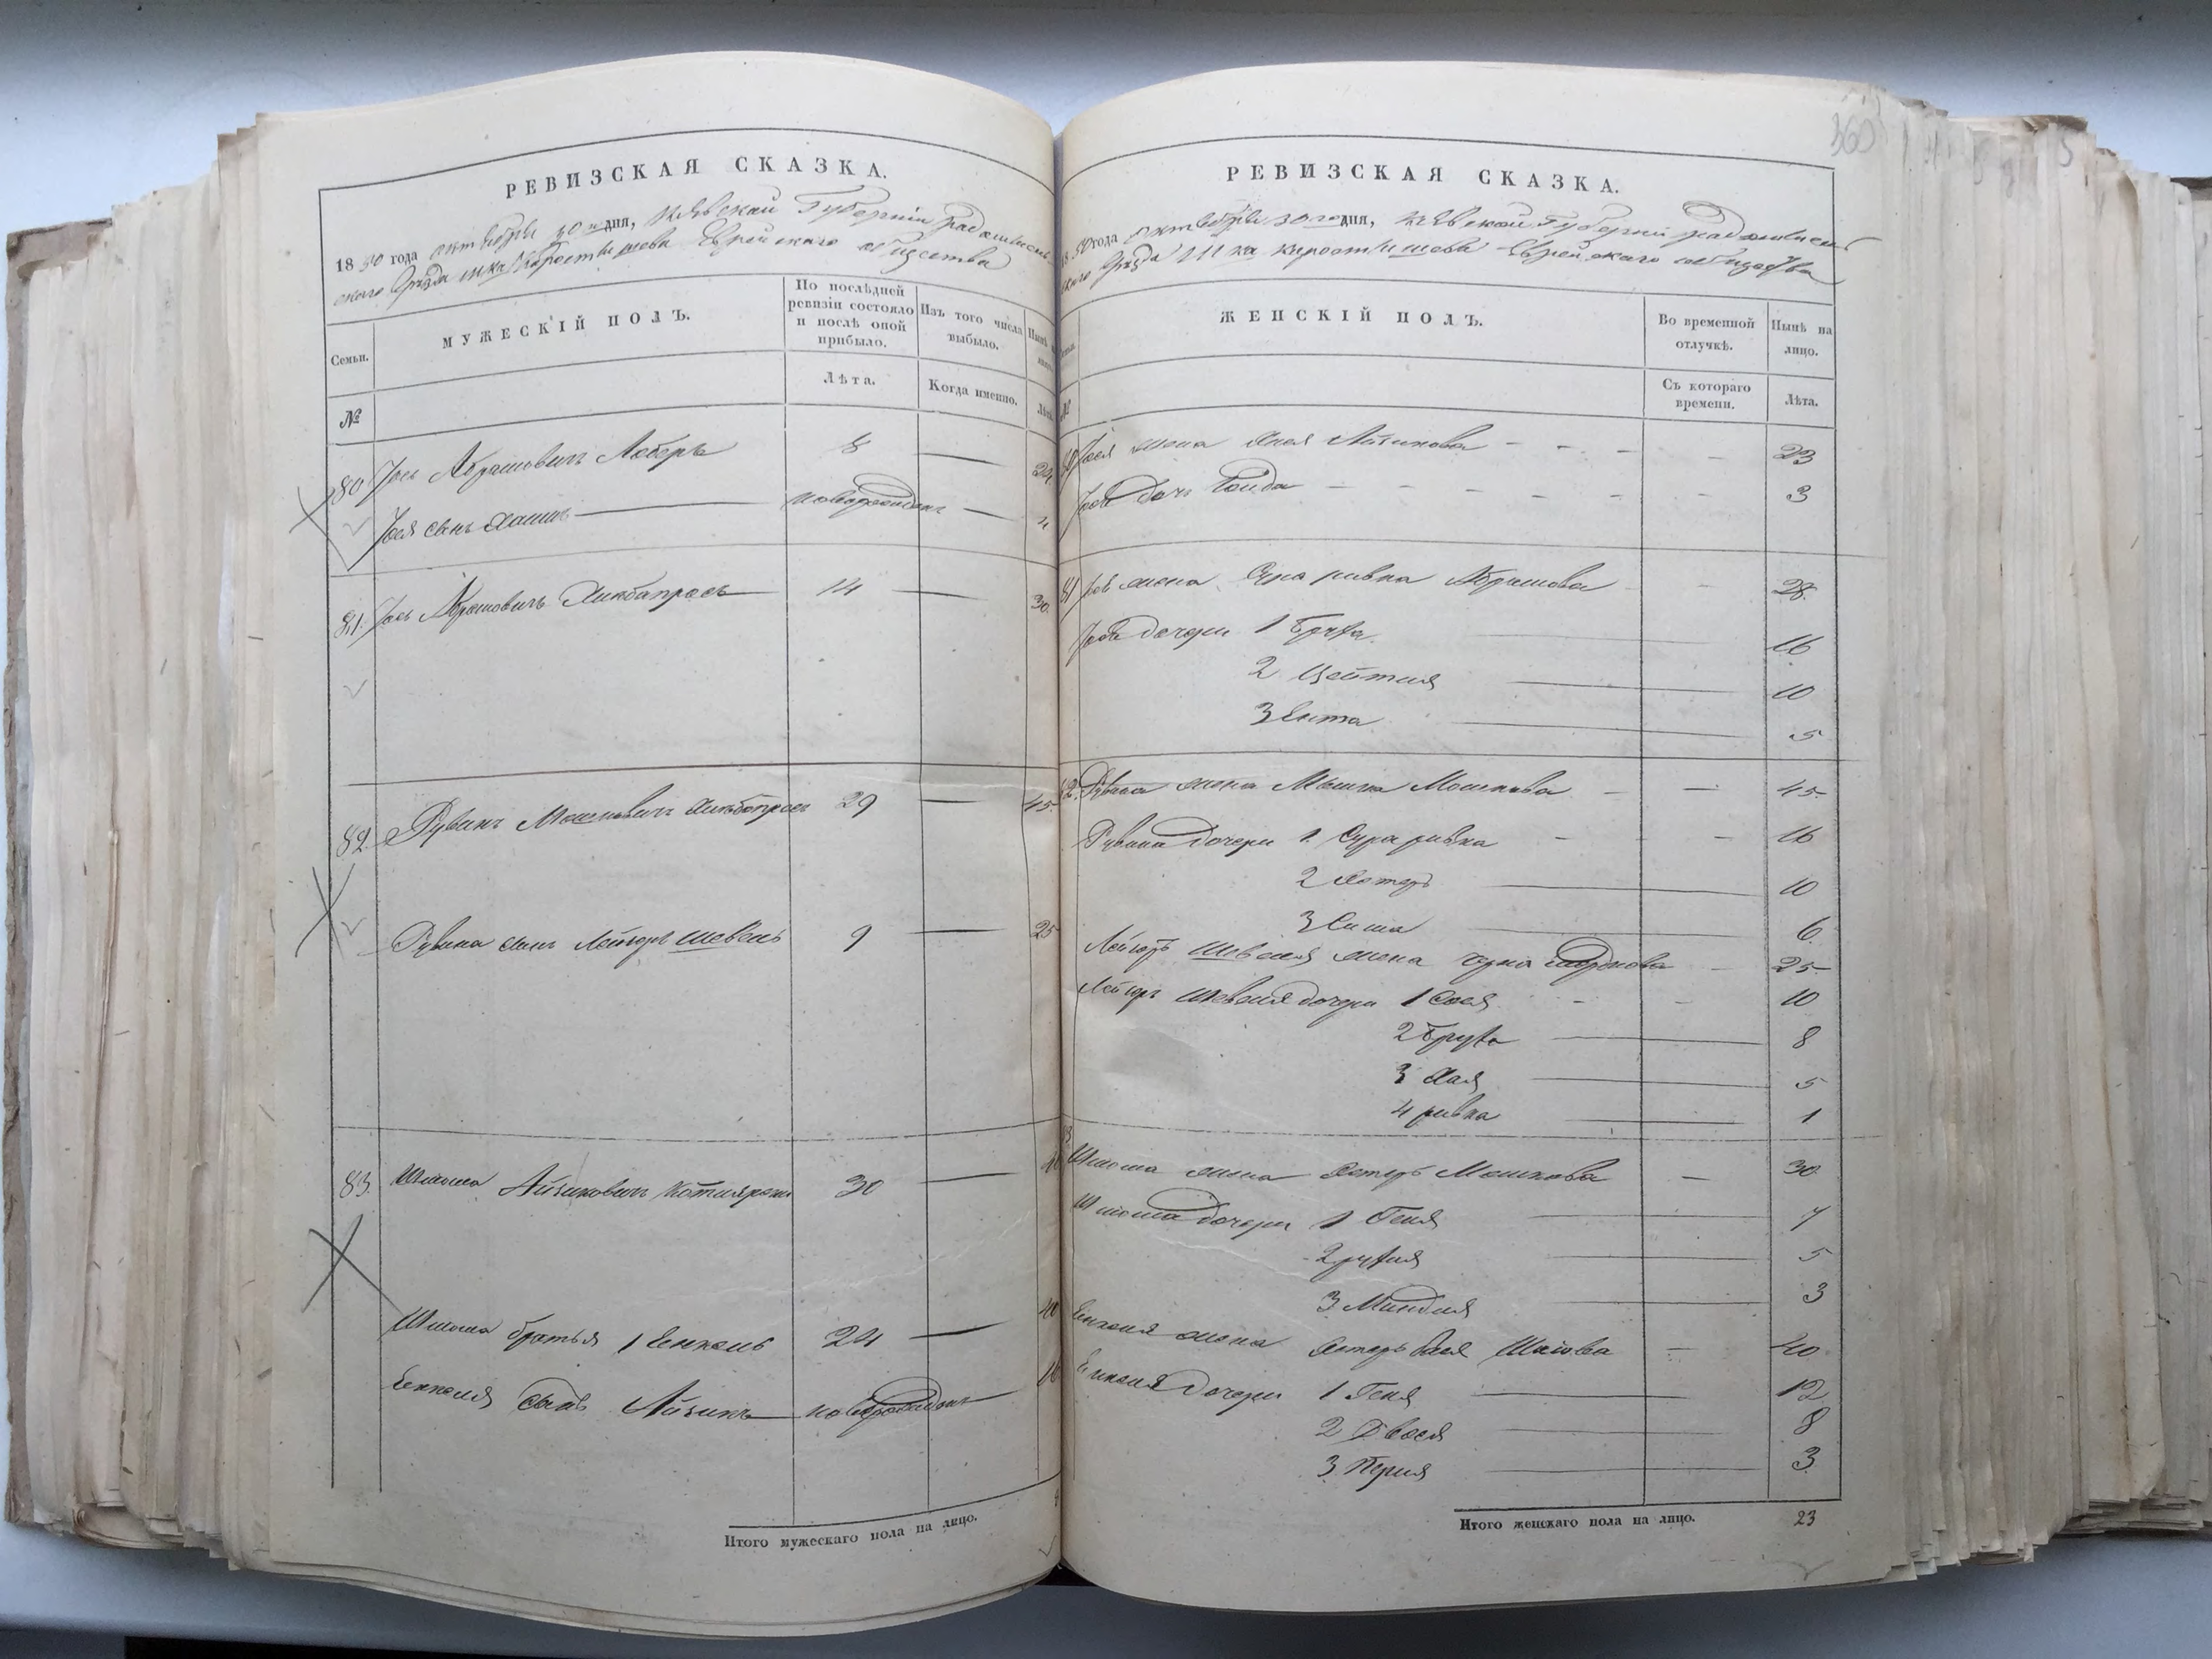 РЕВИЗСКАЯ СКАЗКА.
1850 года октября 30 дня, Кіевской Губерніи Радомысль-
скаго уѣзда м-ка Коростышева Еврейскаго общества
Семьи.
МУЖЕСКІЙ ПОЛЪ.
По послѣдней ревизіи состояло и послѣ оной прибыло.
Изъ того числа выбыло.
№
Лѣта.
Когда именно.
80 Іось Абрамовичъ 8 24
Іося сынъ новорожденъ 4
81. Іось Абрамовичъ 14 30
82. Рувинъ Мошковичъ 29 45
Рувина сынъ Лейзоръ Шевель 9 25
83. Шлема Айзиковичъ 30
Шлема братья 1 Енкель 24 40
Енкеля сынъ Айзикъ новорожденъ 16
Итого мужескаго пола на лицо.
360
РЕВИЗСКАЯ СКАЗКА.
1850 года октября 30 дня, Кіевской Губерніи Радомысль-
скаго уѣзда м-ка Коростышева Еврейскаго общества
ЖЕНСКІЙ ПОЛЪ.
Во временной отлучкѣ.
Нынѣ на лицо.
№
Съ котораго времени.
Лѣта.
Іося жена Хая Айзикова 23
Іося дочь 3
81 Іося жена Сура ривка Абрамова 28
Іося дочери 1 Бруха 16
2 Цейтля 10
3 Ента 5
82. Рувина жена Мошкова 45
Рувина дочери 1. Сура ривка 16
2 Эстеръ 10
3 6
Лейзоръ Шевеля жена 25
Лейзоръ Шевеля дочери 1 Сося 10
2 Бруха 8
3 Хая 5
4 ривка 1
Шлема жена Эстеръ Мошкова 30
Шлема дочери 1 Геня 7
2 рухля 5
3 Миндля 3
Енкеля жена Эстеръ Хая 40
Енкеля дочери 1 Геня 12
2 Двося 8
3 Перля 3
Итого женскаго пола на лицо. 23